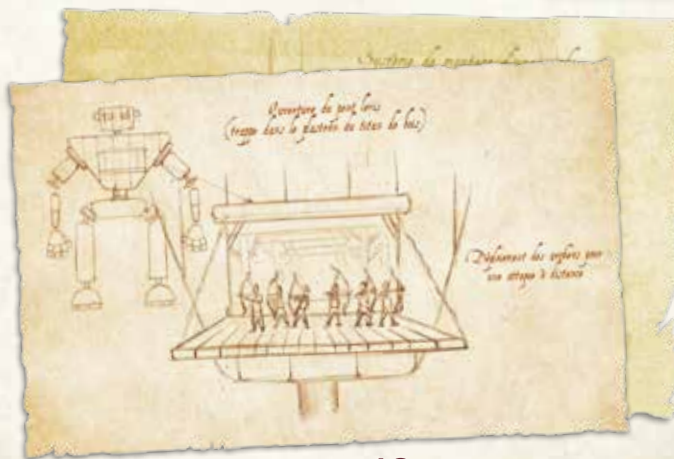 Système de
Ouverture du pont levis
(trappe dans le plastron du titan de bois)
Déploiement des pour
une attaque à distance